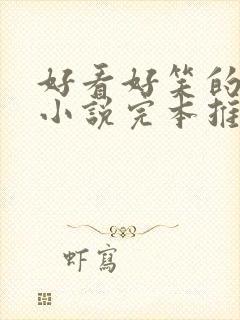 好看好笑的
小说完本推
虾写